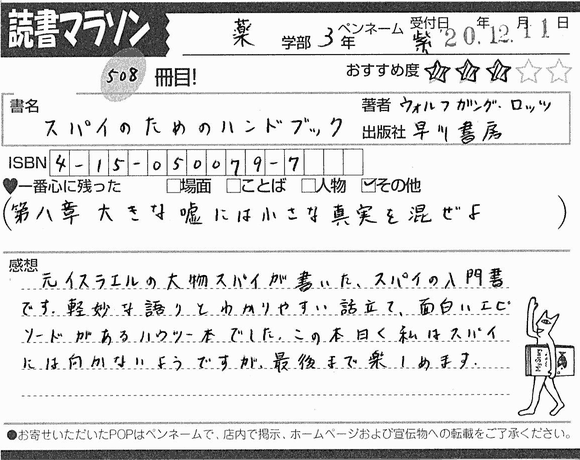 読書マラソン
薬 学部 3年 ペンネーム 紫 受付日 20年12月11日
508 冊目!
おすすめ度 ★★★☆☆
書名 スパイのためのハンドブック
著者 ウォルフガング・ロッツ
出版社 早川書房
ISBN 4-15-050079-7
♥一番心に残った □場面 □ことば □人物 ☑その他
(第八章 大きな嘘には小さな真実を混ぜよ)
感想
元イスラエルの大物スパイが書いた、スパイの入門書
です。軽妙な語りとわかりやすい話立て、面白いエピ
ソードがあるハウツー本でした。この本曰く私はスパイ
には向かないようですが、最後まで楽しめます。
Mystery
●お寄せいただいたPOPはペンネームで、店内で掲示、ホームページおよび宣伝物への転載をご了承ください。